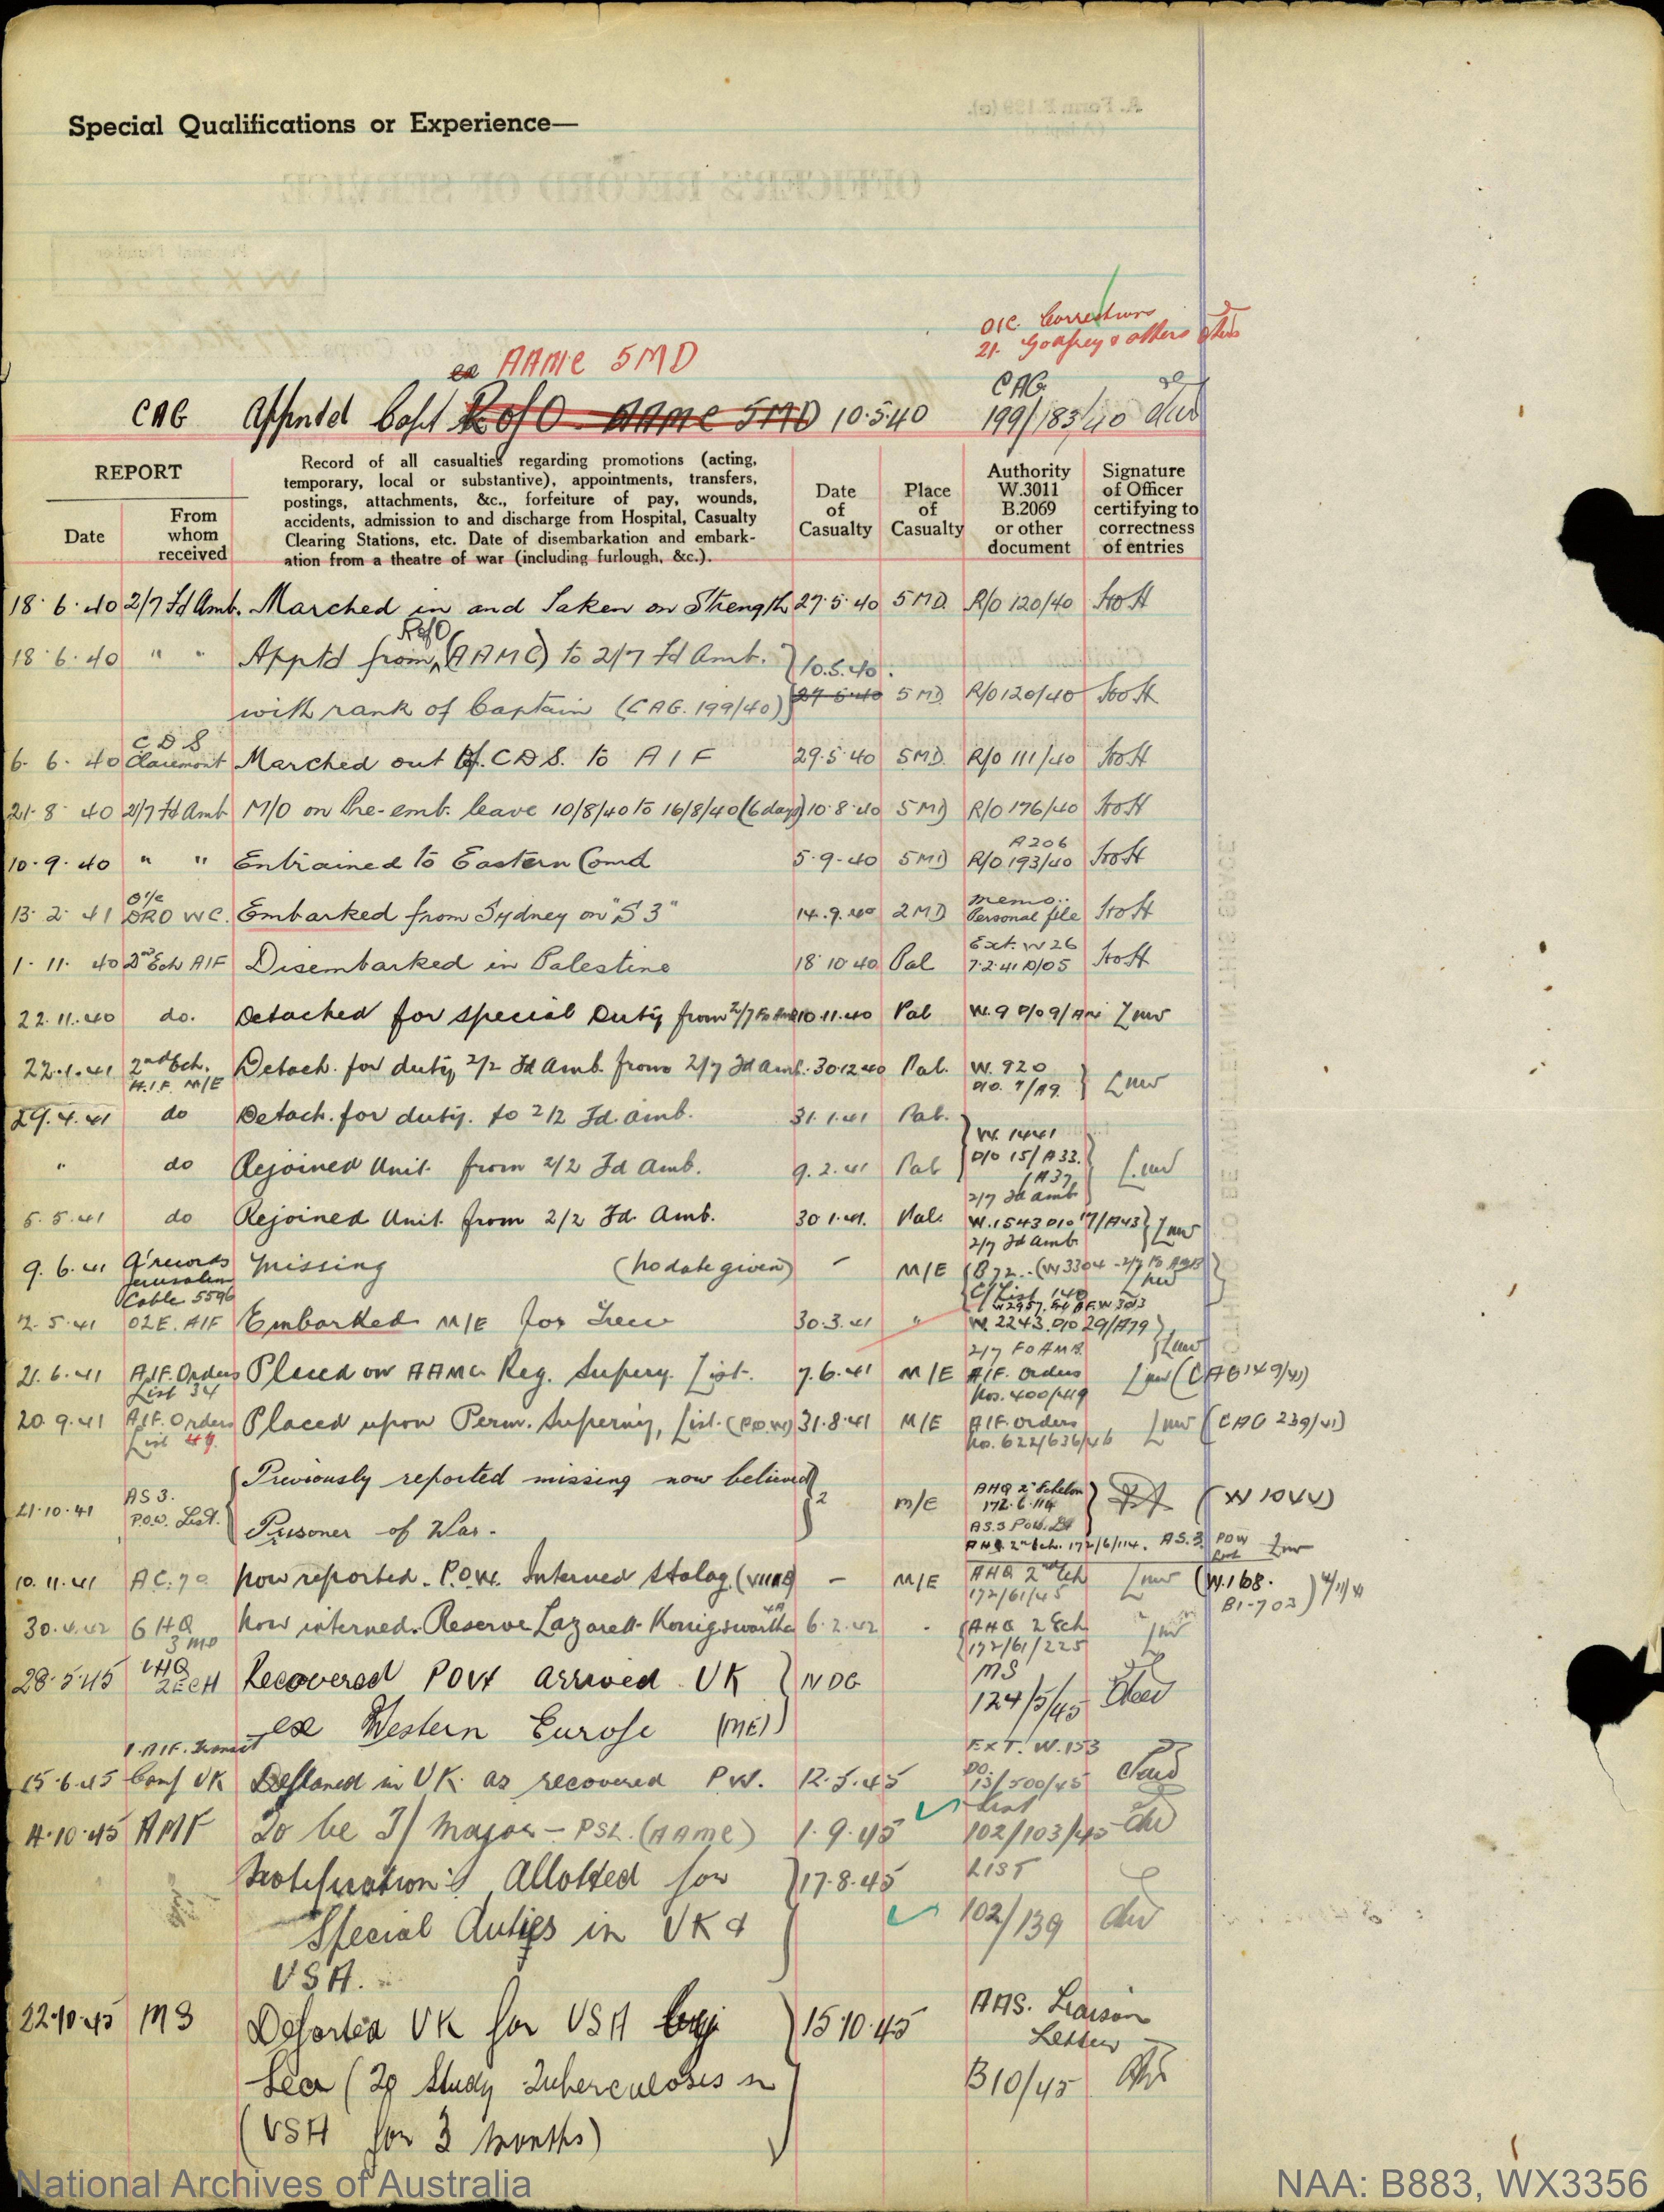 Special Qualifications or Experience—
O/C. Corrections
21. Godfrey & others
ex AAMC 5MD
CAG Appntd Capt R of O AAMC 5MD 10.5.40 CAG 199/183/40
REPORT
Date
From whom received
Record of all casualties regarding promotions (acting,
temporary, local or substantive), appointments, transfers,
postings, attachments, &c., forfeiture of pay, wounds,
accidents, admission to and discharge from Hospital, Casualty
Clearing Stations, etc. Date of disembarkation and embark-
ation from a theatre of war (including furlough, &c.).
Date of Casualty
Place of Casualty
Authority W.3011 B.2069 or other document
Signature of Officer certifying to correctness of entries
18.6.40 2/7 Fd Amb. Marched in and Taken on Strength 27.5.40 5 MD. R/O 120/40
18.6.40 " " Apptd from R of O (AAMC) to 2/7 Fd Amb. 10.5.40.
with rank of Captain (CAG. 199/40) 27.5.40 5 MD. R/O 120/40
6.6.40 CDS Claremont Marched out of C.D.S. to AIF 29.5.40 5MD. R/O 111/40
21.8.40 2/7 Fd Amb M/O on Pre-emb. leave 10/8/40 to 16/8/40 (6 days) 10.8.40 5 MD R/O 176/40
10.9.40 " " Entrained to Eastern Comd 5.9.40 5 MD A206 R/O 193/40
13.2.41 O i/c DRO WC. Embarked from Sydney on "S 3" 14.9.40 2 MD memo.. Personal file
1.11.40 2nd Ech AIF Disembarked in Palestine 18.10.40 Pal Ext. W26 7.2.41 D/O5
22.11.40 do. Detached for special Duty from 2/7 Fd Amb 10.11.40 Pal W.9 D/O 9/A
22.1.41 2nd Ech. A.I.F. M/E Detach. for duty 2/2 Fd Amb. from 2/7 Fd Amb. 30.12.40 Pal. W. 920 D/O. 7/A9.
29.4.41 do Detach. for duty. to 2/2 Fd. Amb. 31.1.41 Pal. W. 1441
" do Rejoined Unit. from 2/2 Fd Amb. 9.2.41 Pal D/O 15/A33. /A37 2/7 Fd Amb
5.5.41 do Rejoined Unit. from 2/2 Fd. Amb. 30.1.41. Pal. W.1543 D/O 17/A43 2/7 Fd Amb
9.6.41 O i/c records Jerusalem Cable 5596 Missing (No date given) – M/E B72. (W3304 - 2/7 Fd Amb C/List 140 W2957. Ext AF.W303
12.5.41 O2E. AIF Embarked M/E for Greece 30.3.41 " W. 2243. D/O 29/A79 2/7 FD AMB.
21.6.41 A.I.F. Orders List 34 Placed on AAMC Reg. Supery. List. 7.6.41 M/E A.I.F. Orders No. 400/419 (CAG 149/41)
20.9.41 A.I.F. Orders List 49. Placed upon Perm. Supern'y, List. (P.O.W) 31.8.41 M/E A.I.F. Orders No. 622/636/46 (CAG 239/41)
Previously reported missing now believed
21.10.41 AS 3. P.O.W. List. Prisoner of War. M/E AHQ 2nd Echelon 172.6.114 AS.3 POW. List
AHQ 2nd Ech. 172/6/114. AS.3. POW List
10.11.41 AC.70 Now reported. P.O.W. Interned Stalag. (VIIIB) – M/E AHQ 2nd Ech 172/61/45 (W.168. B1-703)
30.4.42 GHQ 3 MD Now interned. Reserve Lazarett Konigswartha 4A 6.2.42 AHQ 2 Ech 172/61/225
28.5.45 LHQ 2 ECH Recovered POW arrived UK NDG MS
ex Western Europe (ME) 124/5/45
15.6.45 A.I.F. Transit Camp UK Deplaned in UK as recovered P.W. 12.5.45 EXT. W.153 DO. 13/500/45
4.10.45 AMF To be T/Major – PSL. (AAMC) 1.9.45 List 102/103/45
Notification: Allotted for 17.8.45 LIST
Special Duties in UK & 102/139
USA.
22.10.45 MS Departed UK for USA by 15.10.45 AMS. Liaison Letter
Sea (To Study Tuberculosis in B10/45
(USA for 3 months)
National Archives of Australia
NAA: B883, WX3356